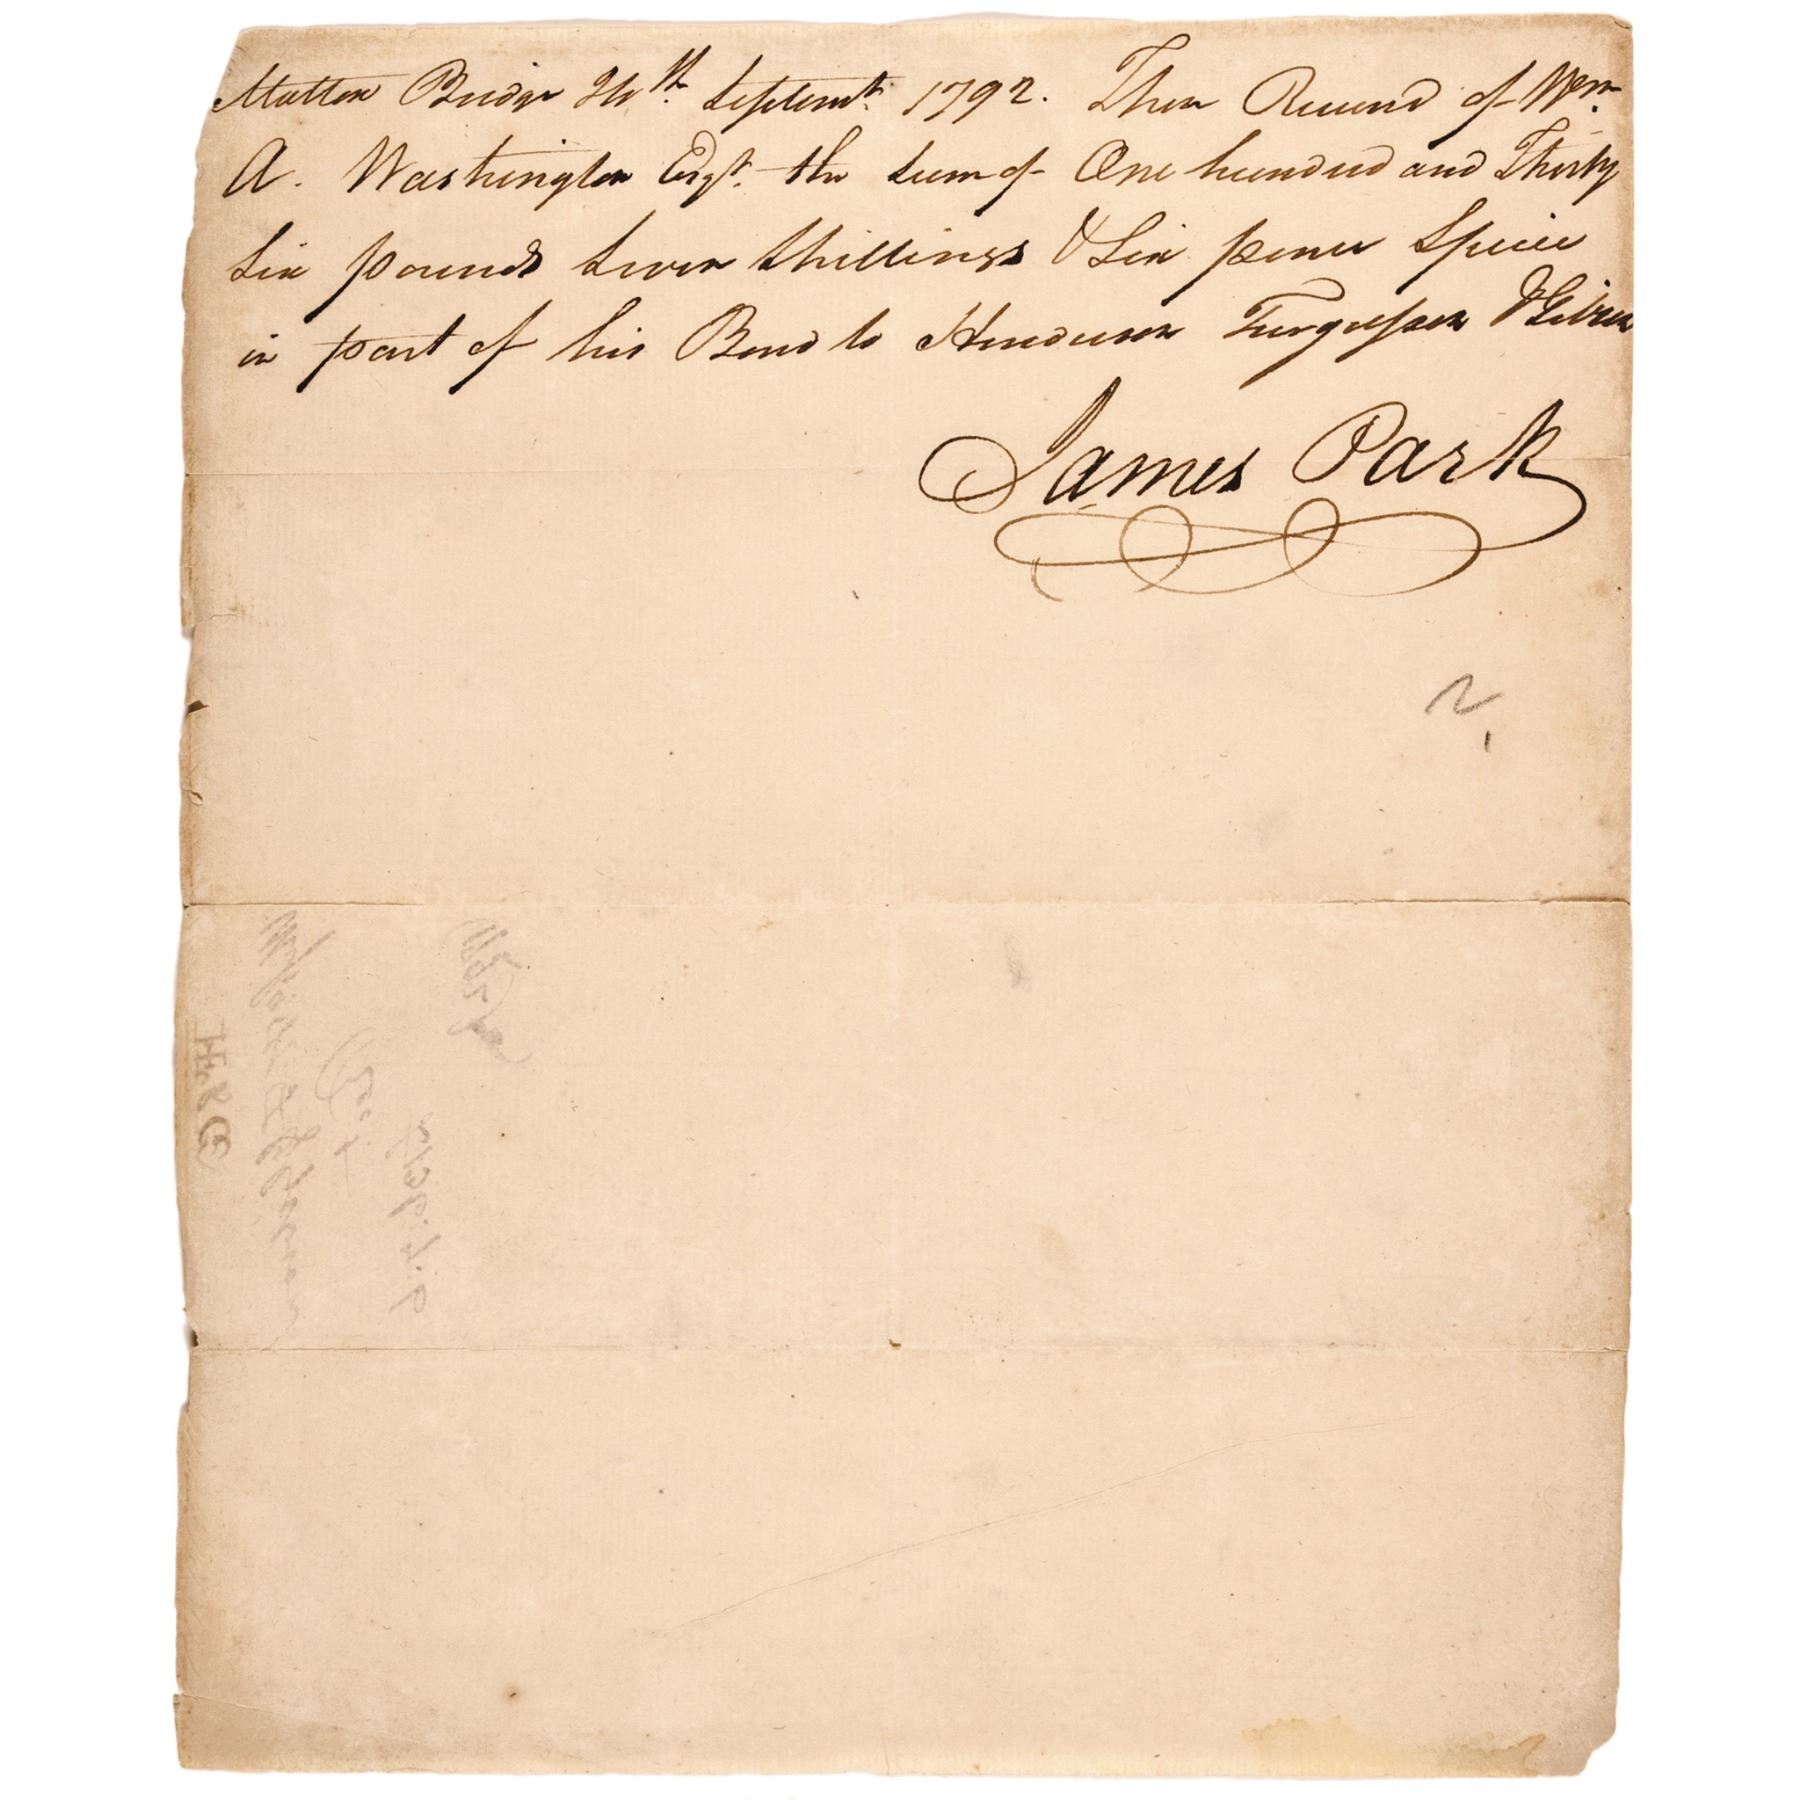 Mattox Bridge 24th. Septemr. 1792. Then Receivd of Wm.
A. Washington Esqr. the Sum of One hundred and Thirty
Six pounds Seven Shillings & Six pence Specie
in part of his Bond to Henderson Fergusson & Gibson
James Park